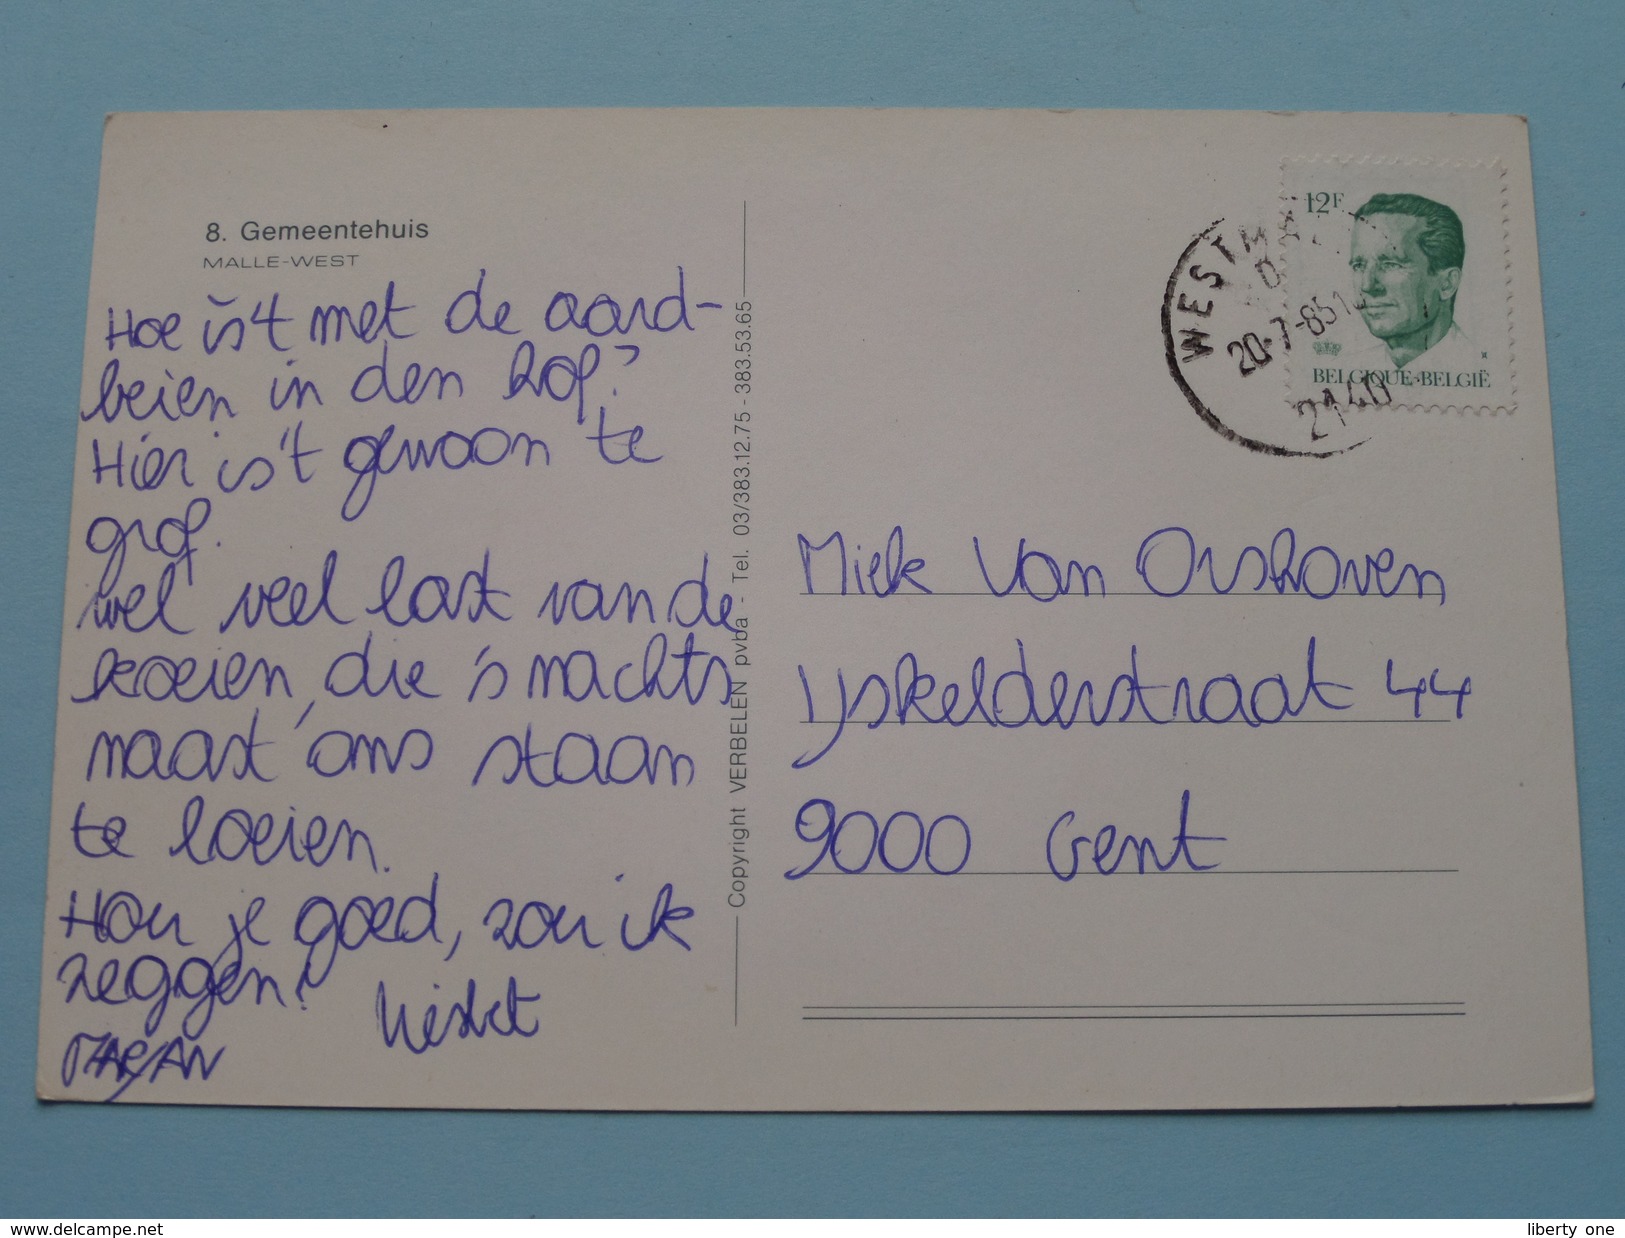 8. Gemeentehuis
MALLE-WEST
Hoe is't met de aard-
beien in den hof?
Hier is't gewoon te
grof.
wel veel last van de
koeien, die 's nachts
naast ons staan
te loeien.
Hou je goed, zou ik
zeggen!
Liesbet
MARJAN
Copyright VERBELEN pvba - Tel. 03/383.12.75 - 383.53.65
12F
BELGIQUE·BELGIË
WESTM
20-7-85
2140
Miek Van Orshoven
Ijskelderstraat 44
9000 Gent
www.delcampe.net
liberty one